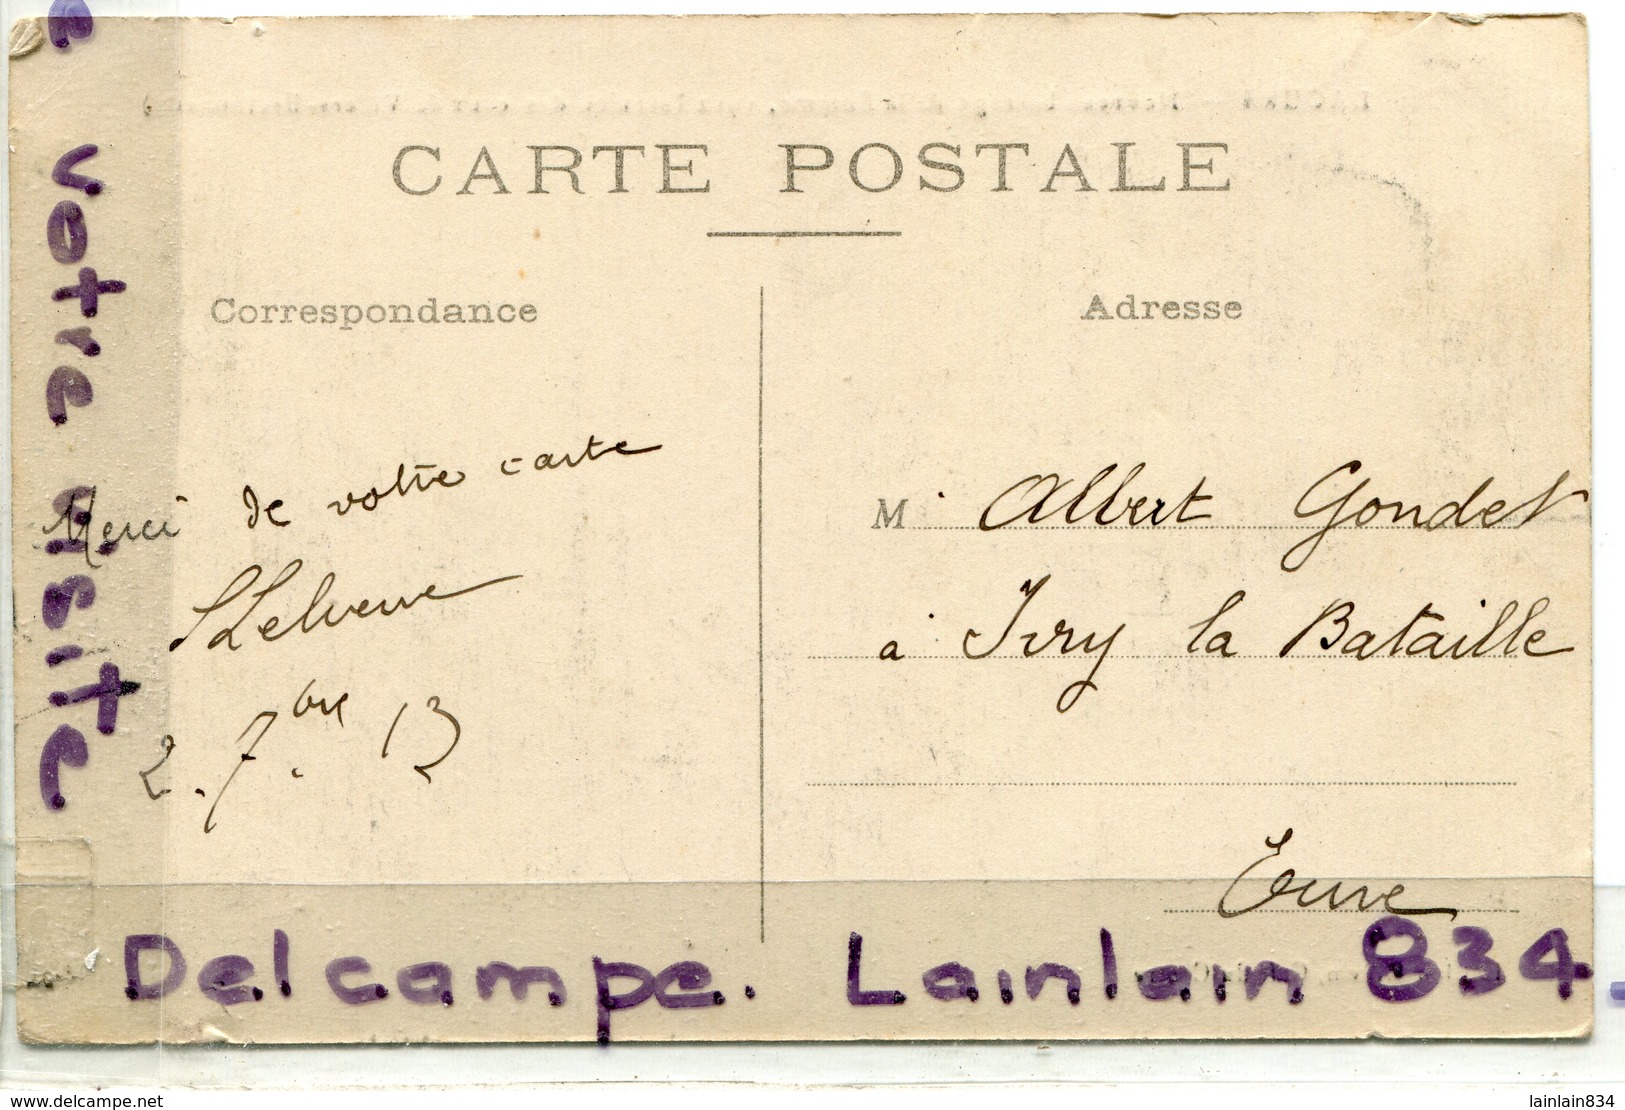 CARTE POSTALE
Correspondance
Adresse
Merci de votre carte
2. 7bre 13
M. Albert Gondet
à Ivry la Bataille
Eure
votre visite
Delcampe. Lainlain 834.
www.delcampe.net
lainlain834